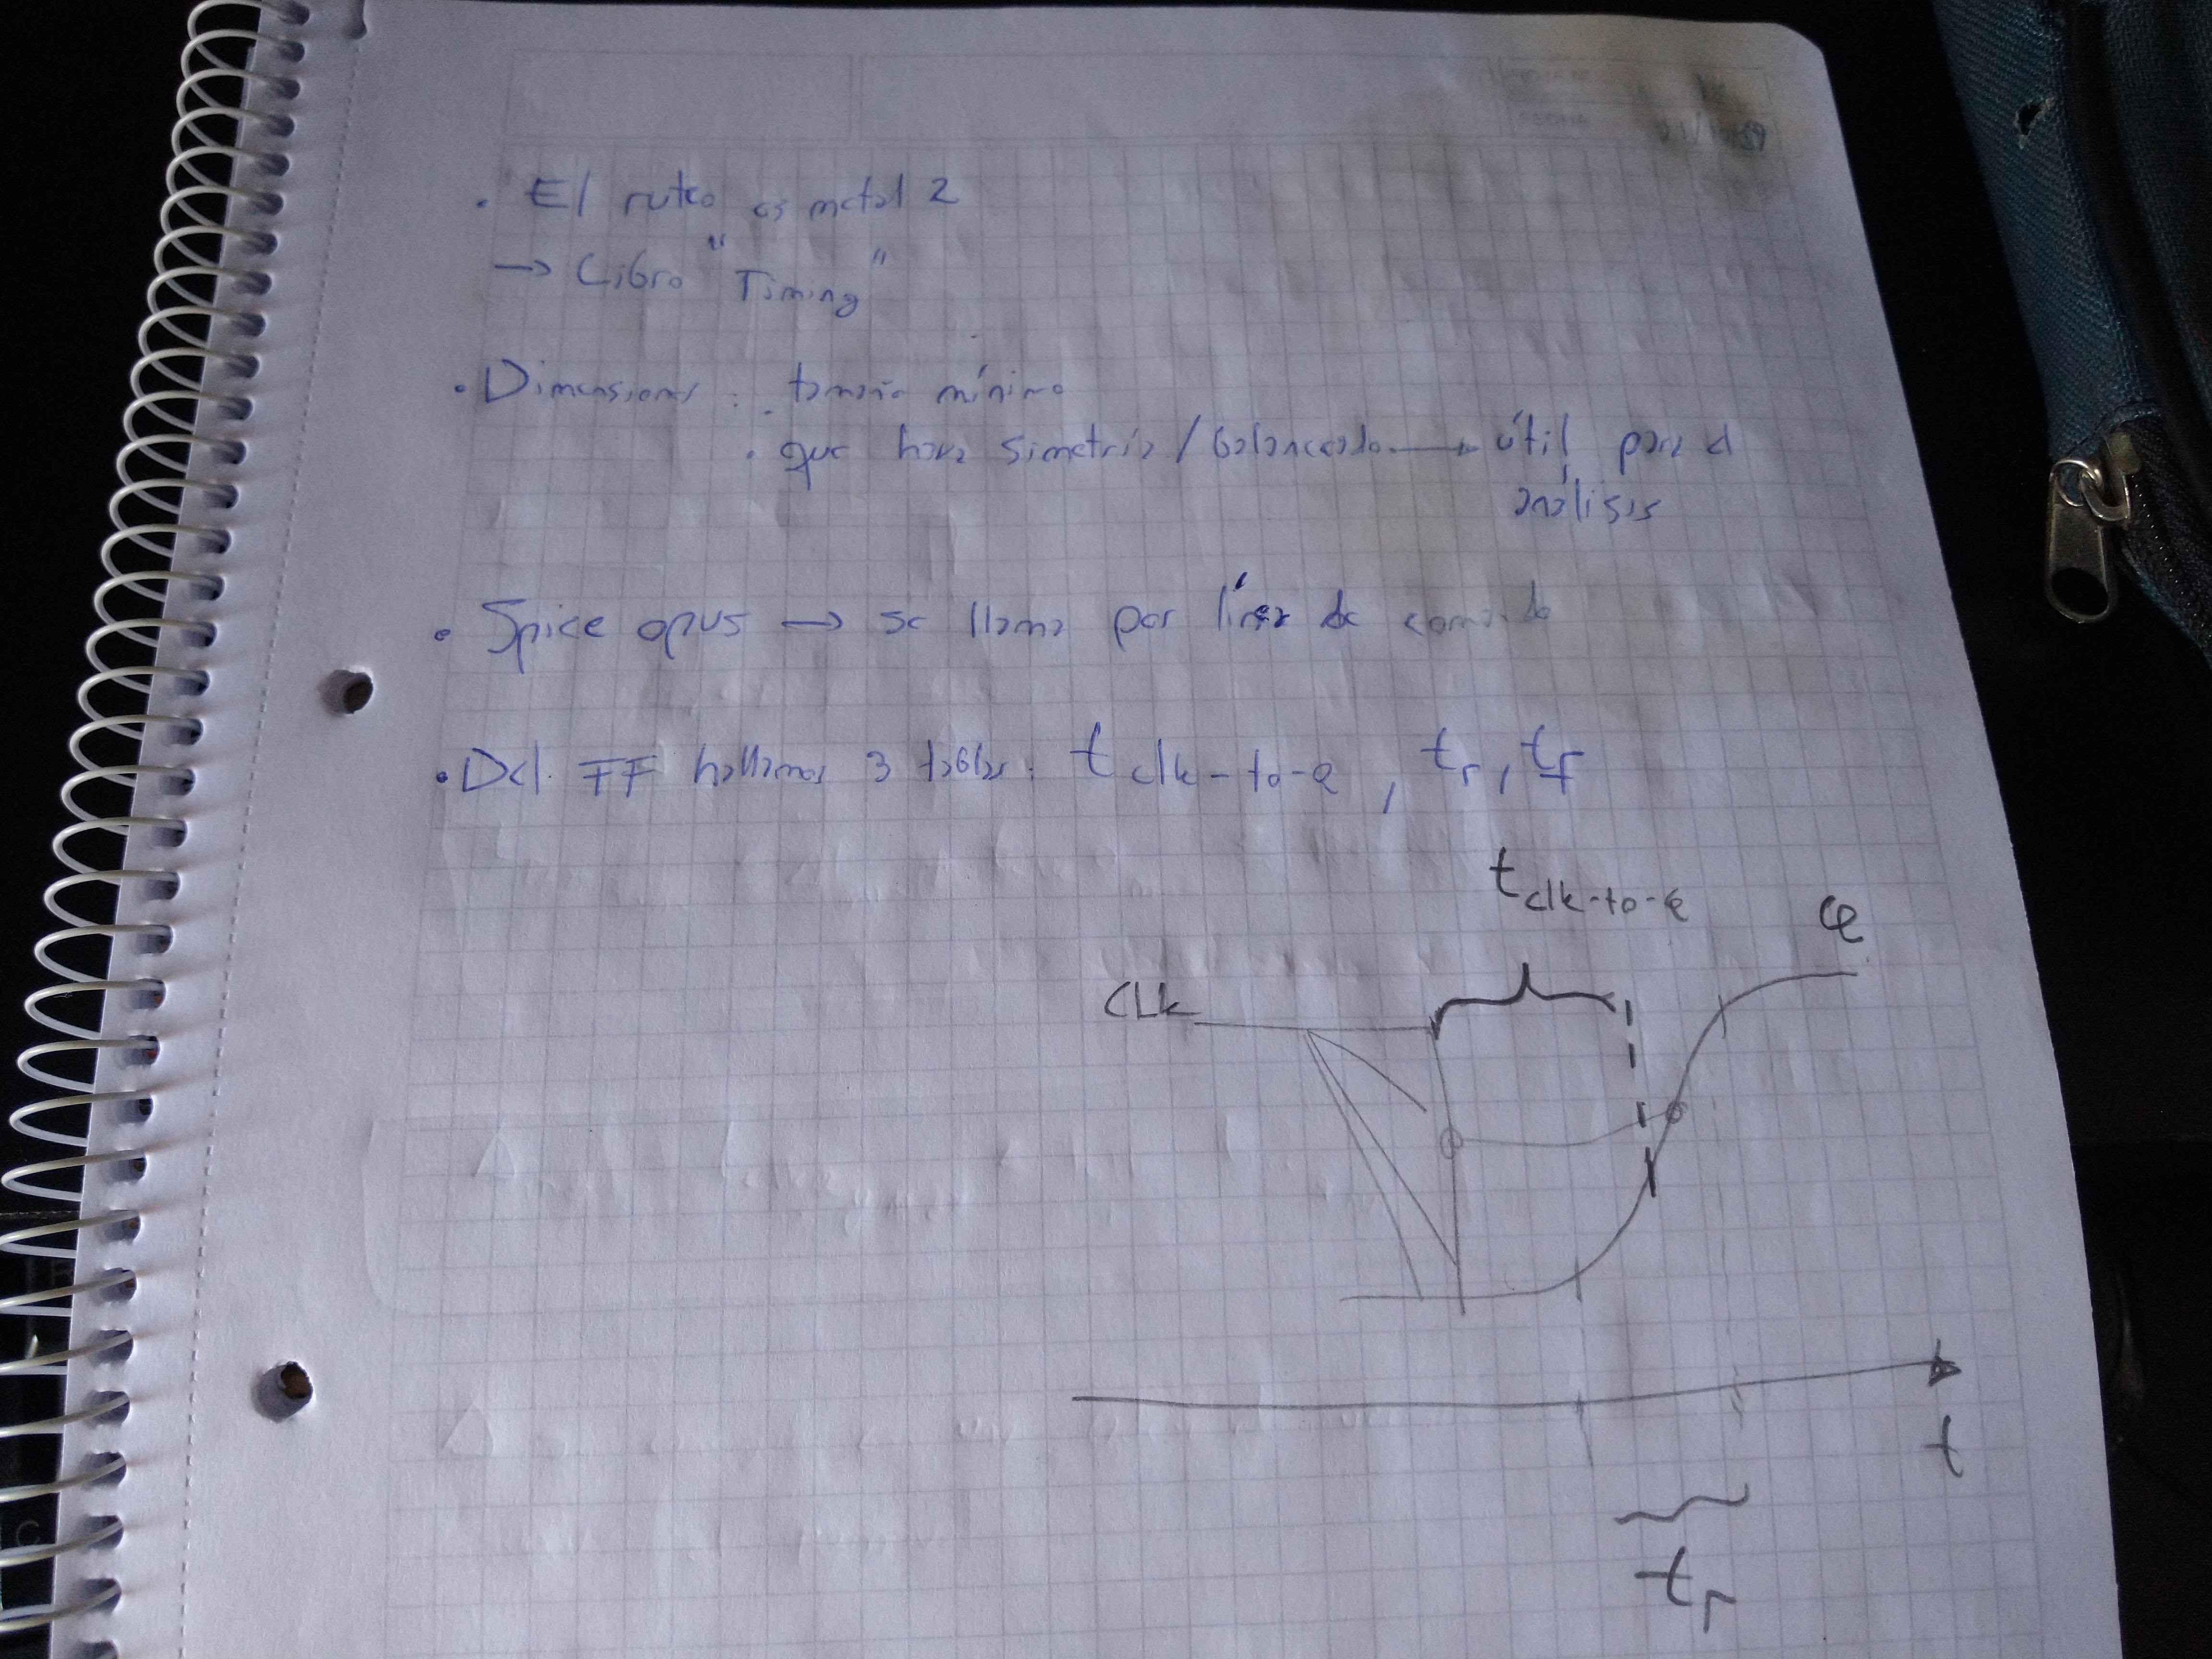 • El ruteo es metal 2
→ Libro "Timing"
• Dimensiones: . tamaño mínimo
. que haya simetría / balanceado → útil para el
análisis
• Spice opus → se llama por línea de comando
• Del FF hallamos 3 tablas: t clk-to-Q, tr, tf
t clk-to-Q
Q
CLK
t
tr